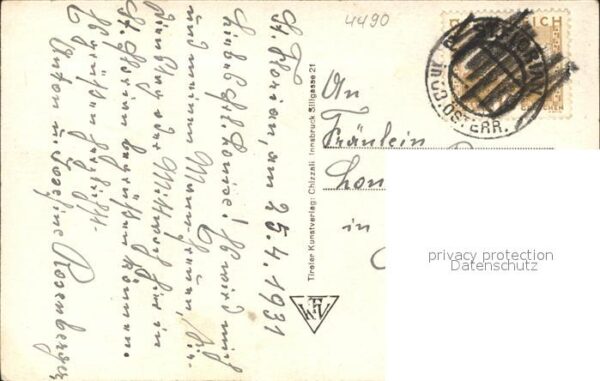 St. Florian, am 25.4.1931
Liebes Frl. Louise! Es wird mich
und meinen Mann freuen, Sie
Dienstag oder Mittwoch hier in
St. Florian begrüßen können.
Es grüßen herzlichst
Anton u. Josefine Rosenberger
4490
Tiroler Kunstverlag: Chizzali Innsbruck Sillgasse 21
An
Fräulein
in
ST. FLORIAN
ÖSTERR.
REICH
GROSCHEN
privacy protection
Datenschutz